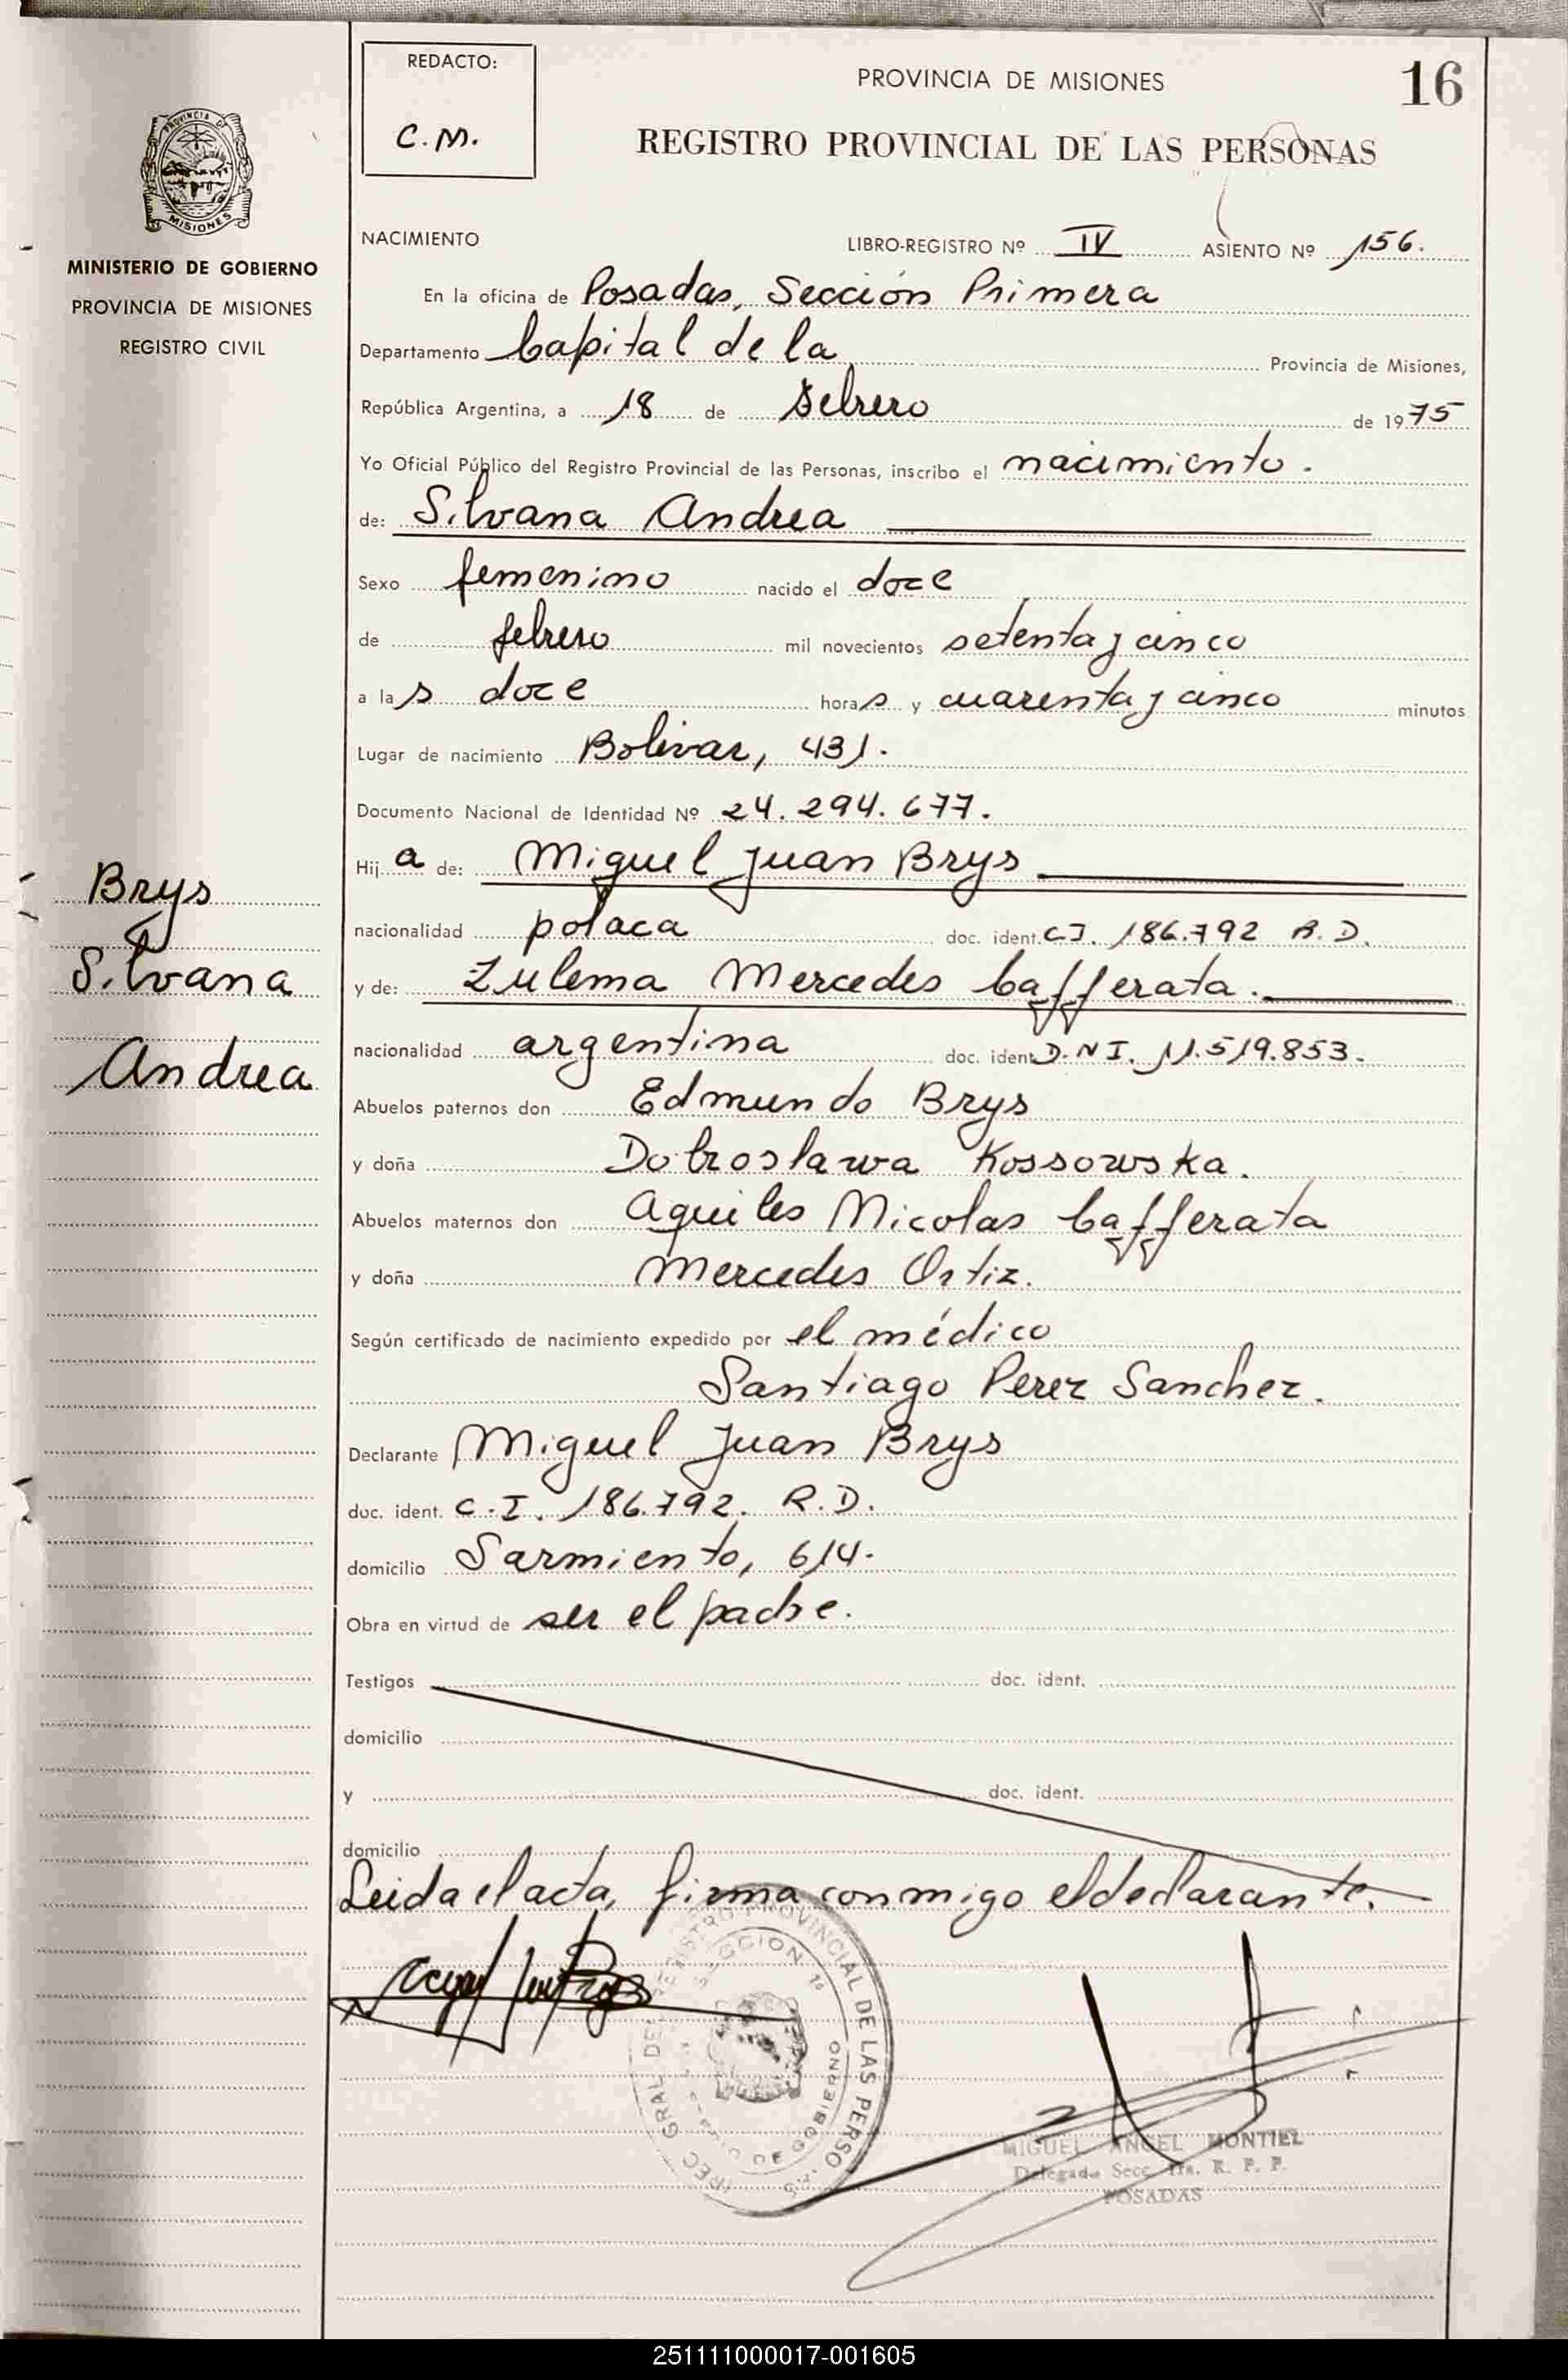 REDACTO:
C.M.
PROVINCIA DE MISIONES
16
REGISTRO PROVINCIAL DE LAS PERSONAS
PROVINCIA DE
MISIONES
MINISTERIO DE GOBIERNO
PROVINCIA DE MISIONES
REGISTRO CIVIL
NACIMIENTO LIBRO-REGISTRO Nº IV ASIENTO Nº 156.
En la oficina de Posadas, Sección Primera
Departamento Capital de la Provincia de Misiones,
República Argentina, a 18 de febrero de 1975
Yo Oficial Público del Registro Provincial de las Personas, inscribo el nacimiento.
de: Silvana Andrea
Sexo femenino nacido el doce
de febrero mil novecientos setenta y cinco
a las doce horas y cuarenta y cinco minutos
Lugar de nacimiento Bolivar, 431.
Documento Nacional de Identidad Nº 24.294.677.
Hija de: Miguel Juan Brys
nacionalidad polaca doc. ident. C.I. 186.792 R.D.
y de: Zulema Mercedes Cafferata.
nacionalidad argentina doc. ident D.N I. 11.519.853.
Abuelos paternos don Edmundo Brys
y doña Dobroslawa Kossowska.
Abuelos maternos don Aquiles Nicolas Cafferata
y doña Mercedes Ortiz.
Según certificado de nacimiento expedido por el médico
Santiago Perez Sanchez.
Declarante Miguel Juan Brys
doc. ident. C.I. 186.792. R.D.
domicilio Sarmiento, 614.
Obra en virtud de ser el padre.
Testigos doc. ident.
domicilio
y doc. ident.
domicilio
Leida el acta, firma conmigo el declarante.
Brys
Silvana
Andrea
REGISTRO PROVINCIAL DE LAS PERSONAS
SECCION 1ª
DE GOBIERNO
MIGUEL ANGEL MONTIEL
Delegado Secc. 1ra. R. P. P.
POSADAS
251111000017-001605